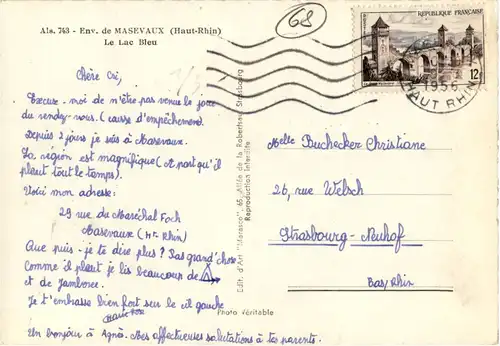 Als. 743 - Env. de MASEVAUX (Haut-Rhin)
Le Lac Bleu
68
RÉPUBLIQUE FRANÇAISE
12f
1956
HAUT RHIN
Chère Cri,
Excuse-moi de n'être pas venue le jour
du rendez-vous. (cause d'empêchement)
Depuis 2 jours je suis à Masevaux.
La région est magnifique (A part qu'il
pleut tout le temps).
Voici mon adresse:
29 rue du Maréchal Foch
Masevaux (Ht- Rhin)
Que puis-je te dire plus? Pas grand'chose
Comme il pleut je lis beaucoup de
et de Jamboree.
Je t'embrasse bien fort sur le œil gauche
Un bonjour à Agnès. Mes affectueuses salutations à tes parents.
Edit. d'Art "Maresco" 46, Allée de la Robertsau, Strasbourg
Reproduction Interdite
Photo Véritable
Melle Buchecker Christiane
26, rue Welsch
Strasbourg-Neuhof
Bas/Rhin